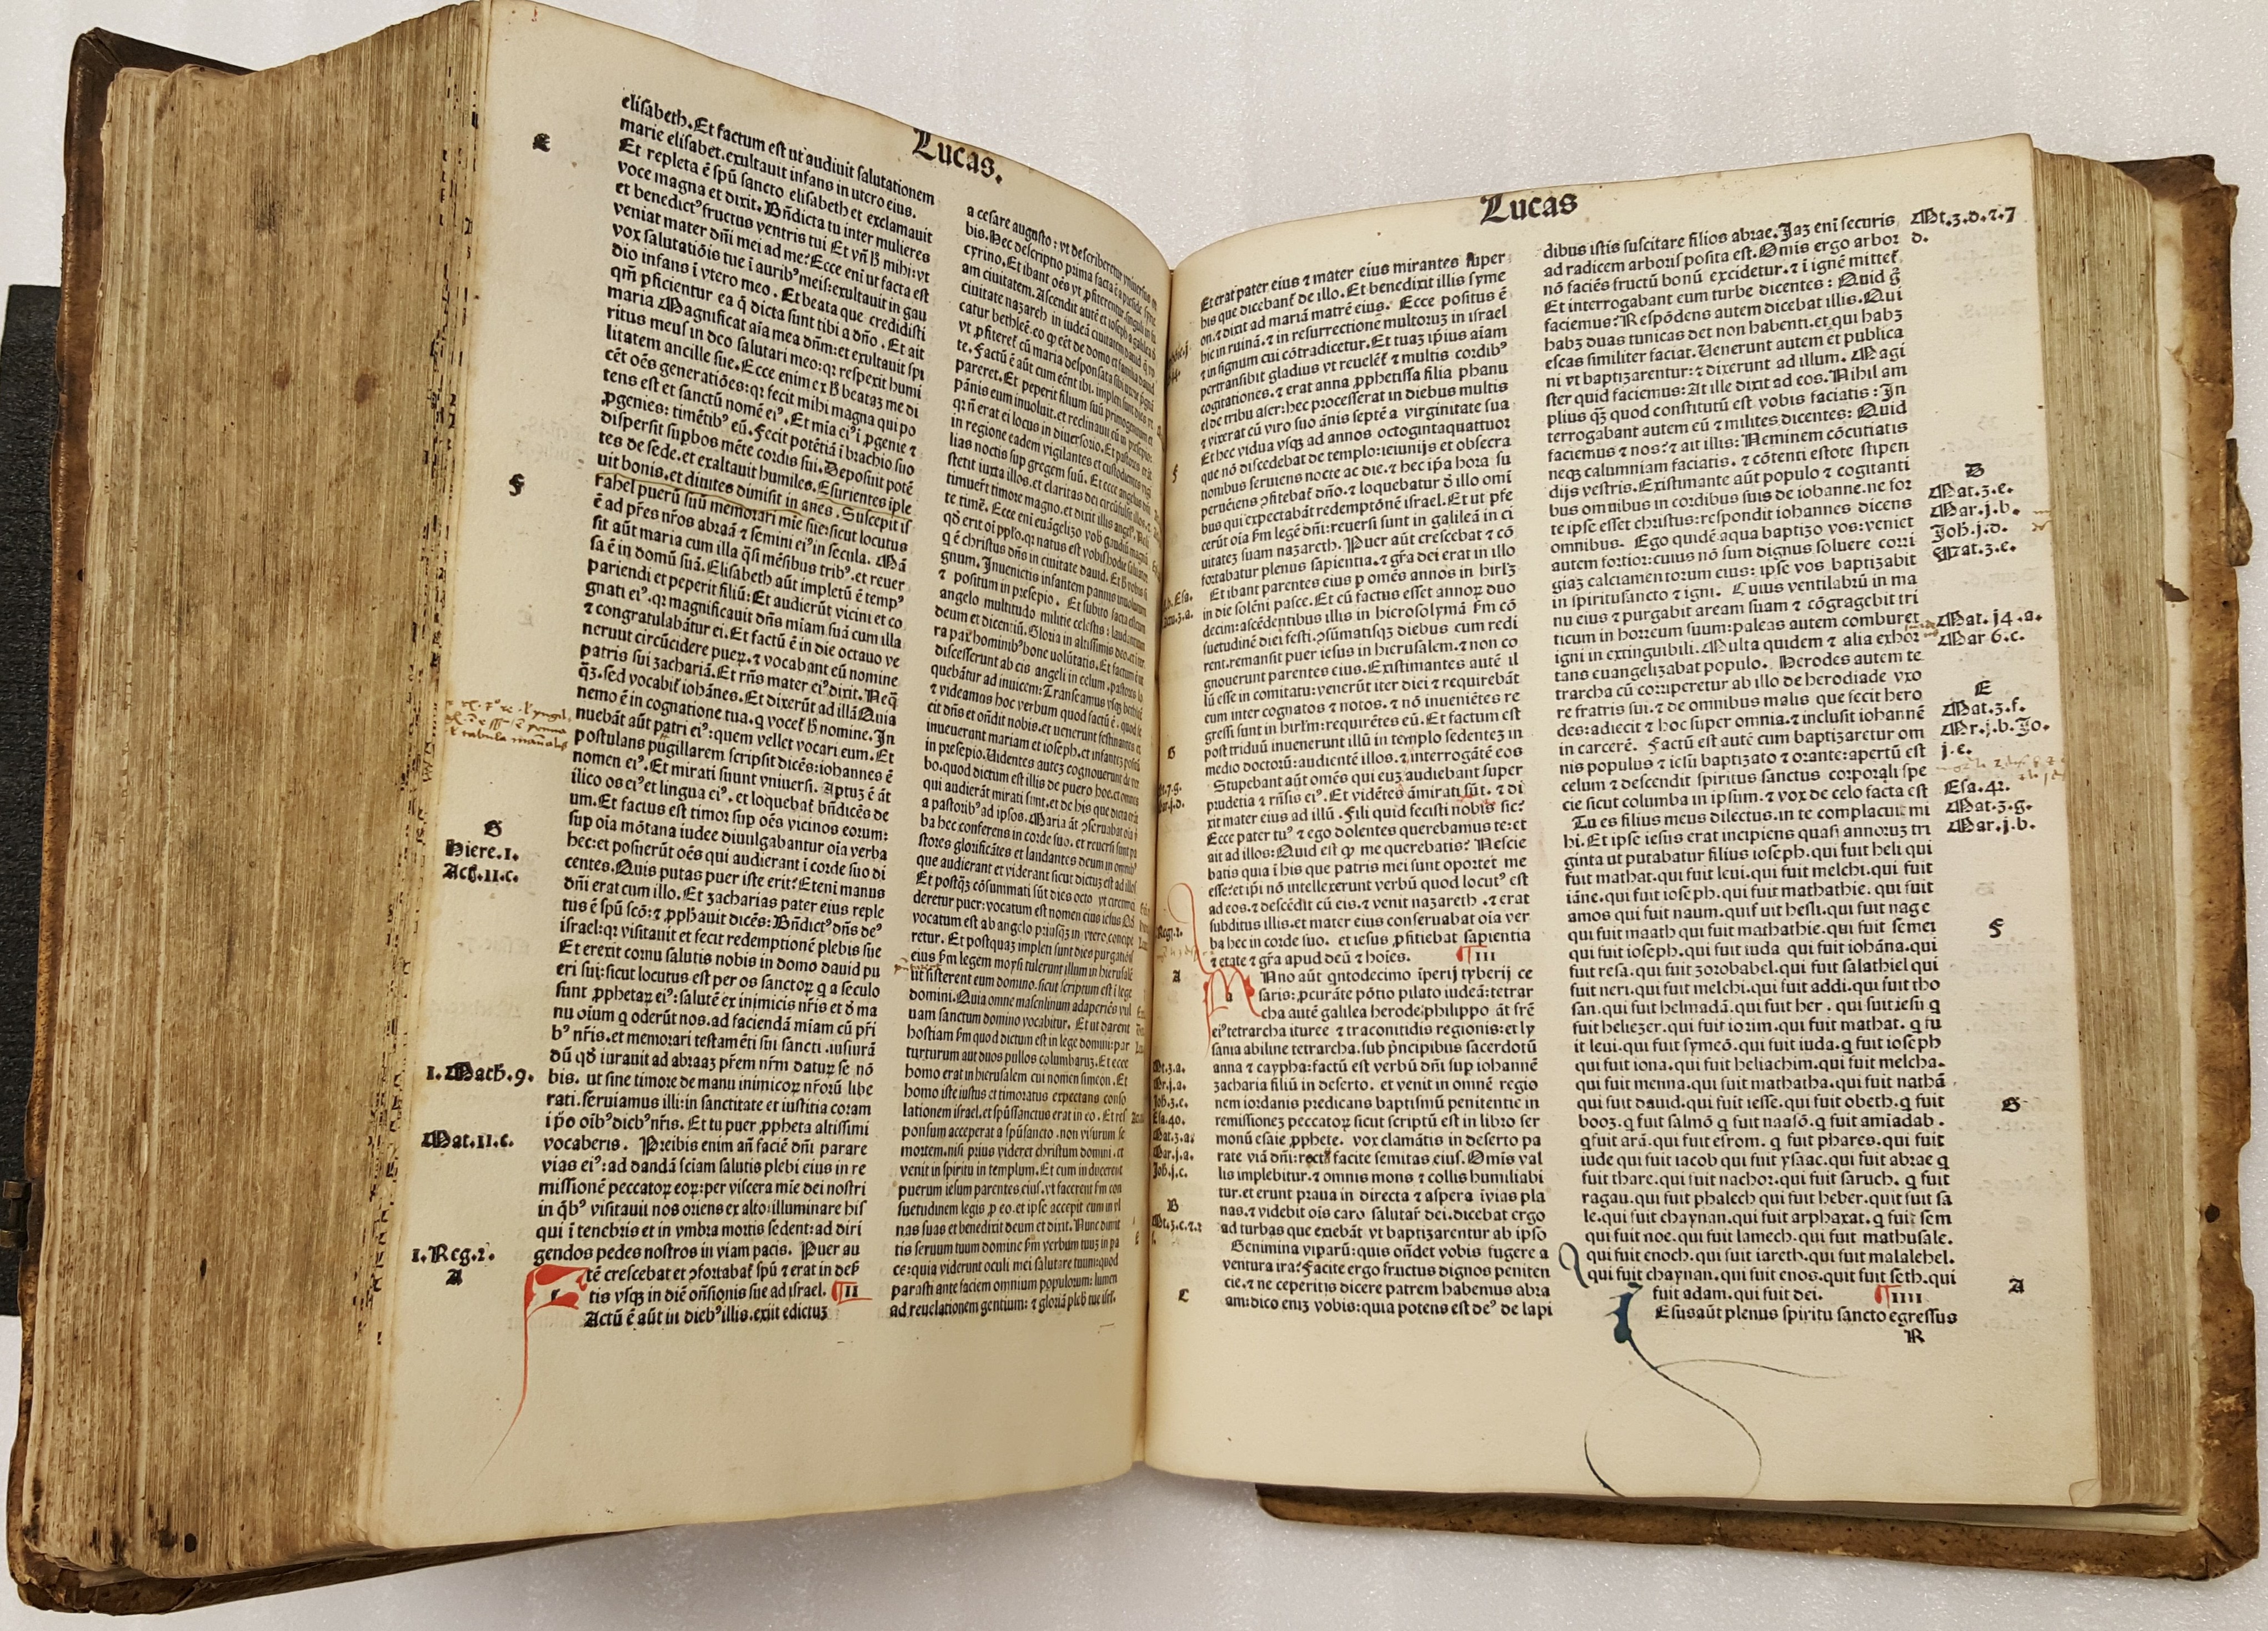 Lucas.
elisabeth. Et factum est ut audiuit salutationem
marie elisabet. exultauit infans in utero eius.
Et repleta ē spū sancto elisabeth et exclamauit
voce magna et dixit. Bn̄dicta tu inter mulieres
et benedict⁹ fructus ventris tui Et vn̄ h̄ mihi: vt
veniat mater dn̄i mei ad me? Ecce eni ut facta est
vox salutatiōis tue ī aurib⁹ meis: exultauit in gau
dio infans ī vtero meo. Et beata que credidisti
qm̄ ꝑficientur ea q̄ dicta sunt tibi a dn̄o. Et ait
maria Magnificat aīa mea dn̄m: et exultauit spi
ritus meus in deo salutari meo: qꝛ respexit humi
litatem ancille sue. Ecce enim ex h̄ beataꝫ me di
cēt oēs generatiōes: qꝛ fecit mihi magna qui po
tens est et sanctū nomē ei⁹. Et mīa ei⁹ ī ꝓgenie ⁊
ꝓgenies: timētib⁹ eū. Fecit potētiā ī brachio suo
dispersit suꝑbos mēte cordis sui. Deposuit potē
tes de sede. et exaltauit humiles. Esurientes iple
uit bonis. et diuites dimisit in anes. Suscepit is
rahel puerū suū memorari mīe sue: sicut locutus
ē ad pr̄es nr̄os abraā ⁊ semini ei⁹ in secula. Mā
sit aūt maria cum illa q̄si mēsibus trib⁹. et reuer
sa ē in domū suā. Elisabeth aūt impletū ē temp⁹
pariendi et peperit filiū: Et audierūt vicini et co
gnati ei⁹. qꝛ magnificauit dn̄s mīam suā cum illa
⁊ congratulabātur ei. Et factū ē in die octauo ve
nerunt circūcidere pueꝝ. ⁊ vocabant eū nomine
patris sui zachariā. Et rn̄s mater ei⁹ dixit. Neq̄
q̄ꝫ. sed vocabit̄ iohānes. Et dixerūt ad illā Quia
nemo ē in cognatione tua. q vocet̄ h̄ nomine. In
nuebāt aūt patri ei⁹: quem vellet vocari eum. Et
postulans pugillarem scripsit dicēs: iohannes ē
nomen ei⁹. Et mirati sunt vniuersi. Aptuꝫ ē āt
ilico os ei⁹ et lingua ei⁹. et loquebat̄ bn̄dicēs de
um. Et factus est timor suꝑ oēs vicinos eorum:
suꝑ oīa mōtana iudee diuulgabantur oīa verba
hec: et posuerūt oēs qui audierant ī corde suo di
centes. Quis putas puer iste erit? Eteni manus
dn̄i erat cum illo. Et zacharias pater eius reple
tus ē spū scō: ⁊ ꝓph̄auit dicēs: Bn̄dict⁹ dn̄s de⁹
israel: qꝛ visitauit et fecit redemptionē plebis sue
Et erexit cornu salutis nobis in domo dauid pu
eri sui: sicut locutus est per os sanctoꝝ q a seculo
sunt ꝓphetaꝝ ei⁹: salutē ex inimicis nr̄is et d̄ ma
nu oīum q oderūt nos. ad faciendā mīam cū pr̄i
b⁹ nr̄is. et memorari testamēti sui sancti. iusiurā
dū qd̄ iurauit ad abraaꝫ pr̄em nr̄m datuꝝ se nō
bis. ut sine timore de manu inimicoꝝ nr̄orū libe
rati. seruiamus illi: in sanctitate et iustitia coram
ip̄o oīb⁹ dieb⁹ nr̄is. Et tu puer ꝓpheta altissimi
vocaberis. Preibis enim an̄ faciē dn̄i parare
vias ei⁹: ad dandā sciam salutis plebi eius in re
missionē peccatoꝝ eoꝝ: per viscera mīe dei nostri
in q̄b⁹ visitauit nos oriens ex alto: illuminare his
qui ī tenebris et in vmbra mortis sedent: ad diri
gendos pedes nostros in viam pacis. Puer au
tē crescebat et ꝯfortabat̄ spū ⁊ erat in des̄
tis vsqꝫ in diē on̄sionis sue ad israel. ¶II
Actū ē aūt in dieb⁹ illis. exiit edictuꝫ
E
F
G
Hiere.1.
Ach.11.c.
1.Mach.9.
Mat.11.c.
1.Reg.2.
A
a cesare augusto: vt describeretur
bis. Hec descriptio prima facta ē a preside
cyrino. Et ibant oēs vt ꝓfiterentur singuli in su
am ciuitatem. Ascendit autē et ioseph a galilea d̄
ciuitate nazareh in iudeā ciuitatem dauid q̄ vo
catur bethleē. eo ꝙ eēt de domo et familia dauid
vt ꝓfiteret̄ cū maria desponsata sibi uxore p̄gnā
te. Factū ē aūt cum eēnt ibi. impleti sunt dies vt
pareret. Et peperit filium suū primogenitum et
pānis eum inuoluit. et reclinauit eū in presepio:
qꝛ n̄ erat ei locus in diuersorio. Et pastores erāt
in regione eadem vigilantes et custodientes vigi
lias noctis suꝑ gregem suū. Et ecce angelus dn̄i
stetit iuxta illos. et claritas dei circūfulsit illos. et
timuert̄ timore magno. et dixit illis angel⁹. Noli
te timē. Ecce eni euāgelizo vob̄ gaudiū magnū
qd̄ erit oī pplo. qꝛ natus est vobis hodie saluator
q ē christus dn̄s in ciuitate dauid. Et h̄ vobis si
gnum. Inuenietis infantem pannis inuolutum
⁊ positum in presepio. Et subito facta est cum
angelo multitudo militie celestis: laudantium
deum et dicentiū. Gloria in altissimis deo. et in ter
ra pax hominib⁹ bone volūtatis. Et factum ē ut
discesserunt ab eis angeli in celum. pastores lo
quebātur ad inuicem: Transeamus vsqꝫ bethleē
⁊ videamus hoc verbum quod factū ē. quod fe
cit dn̄s et on̄dit nobis. et uenerunt festinantes et
inuenerunt mariam et ioseph. et infantē positū
in presepio. Uidentes auteꝫ cognouerunt de ver
bo. quod dictum est illis de puero hoc. et omnes
qui audierāt mirati sunt. et de his que dicta erāt
a pastorib⁹ ad ipsos. Maria āt ꝯseruabat oīa ꝟ
ba hec conferens in corde suo. et reuersi sunt pa
stores glorificātes et laudantes deum in omnib⁹
que audierant et viderant sicut dictuꝫ est ad illos
Et postqꝫ cōsummati sūt dies octo vt circumci
deretur puer: vocatum est nomen eius iesus Qd̄
vocatum est ab angelo priusqꝫ in vtero concipe
retur. Et postquaꝫ impleti sunt dies purgatiōis
eius s̄m legem moysi tulerunt illum in hierusalē
ut sisterent eum domino. sicut scriptum est ī lege
domini. Quia omne masculinum adaperiēs vul
uam sanctum domino vocabitur. Et ut darent
hostiam s̄m quod dictum est in lege domini: par
turturum aut duos pullos columbaruꝫ. Et ecce
homo erat in hierusalem cui nomen simeon. Et
homo iste iustus et timoratus expectans conso
lationem israel. et spūssanctus erat in eo. Et res
ponsum acceperat a spūsancto. non visurum se
mortem. nisi prius videret christum domini. et
venit in spiritu in templum. Et cum inducerent
puerum iesum parentes eius. vt facerent s̄m con
suetudinem legis ꝓ eo. et ipse accepit eum in vl
nas suas et benedixit deum et dixit. Nunc dimit
tis seruum tuum domine s̄m verbum tuuꝫ in pa
ce: quia viderunt oculi mei salutare tuum: quod
parasti ante faciem omnium populorum: lumen
ad reuelationem gentium: ⁊ gloriā pleb̄ tue isrl.
Lucas
Et erat pater eius ⁊ mater eius mirantes super
his que dicebant̄ de illo. Et benedixit illis syme
on. ⁊ dixit ad mariā matrē eius. Ecce positus ē
hic in ruinā. ⁊ in resurrectionē multoruꝫ in israel
⁊ in signum cui cōtradicetur. Et tuaꝫ ip̄ius aīam
pertransibit gladius vt reuelēt̄ ⁊ multis cordib⁹
cogitationes. ⁊ erat anna ꝓphetissa filia phanu
el de tribu aser: hec processerat in diebus multis
⁊ vixerat cū viro suo ānis septē a virginitate sua
Et hec vidua vsqꝫ ad annos octogintaquattuor
que nō discedebat de templo: ieiunijs et obsecra
nonibus seruiens nocte ac die. ⁊ hec ip̄a hora su
perueniens ꝯfitebat̄ dn̄o. ⁊ loquebatur d̄ illo omī
bus qui expectabāt redemptōnē israel. Et ut ꝑfe
cerūt oīa s̄m legē dn̄i: reuersi sunt in galileā in ci
uitateꝫ suam nazareth. Puer aūt crescebat ⁊ cō
fortabatur plenus sapientia. ⁊ gr̄a dei erat in illo
Et ibant parentes eius ꝑ omēs annos in hirlꝫ
in die solēni pasce. Et cū factus esset annoꝝ duo
decim: ascēdentibus illis in hierosolymā s̄m cō
suetudinē diei festi. ꝯsūmatisqꝫ diebus cum redi
rent. remansit puer iesus in hierusalem. ⁊ non co
gnouerunt parentes eius. Existimantes autē il
lū esse in comitatu: venerūt iter diei ⁊ requirebāt
eum inter cognatos ⁊ notos. ⁊ nō inueniētes re
gressi sunt in hirlm̄: requirētes eū. Et factum est
post triduū inuenerunt illū in templo sedenteꝫ in
medio doctorū: audientē illos. ⁊ interrogātē eos
Stupebant aūt omēs qui euꝫ audiebant super
prudētia ⁊ rn̄sis ei⁹. Et vidētes āmirati sūt. ⁊ di
xit mater eius ad illū. Fili quid fecisti nobis sic?
Ecce pater tu⁹ ⁊ ego dolentes querebamus te: et
ait ad illos: Quid est ꝙ me querebatis? Nescie
batis quia ī his que patris mei sunt oportet me
esse: et ip̄i nō intellexerunt verbū quod locut⁹ est
ad eos. ⁊ descēdit cū eis. ⁊ venit nazareth. ⁊ erat
subditus illis. et mater eius conseruabat oīa ver
ba hec in corde suo. et iesus ꝓfitiebat sapientia
⁊ etate ⁊ gr̄a apud deū ⁊ hoīes. ¶III
Nno aūt qntodecimo īperij tyberij ce
saris: ꝓcurāte pōtio pilato iudeā: tetrar
cha autē galilea herode: philippo āt frē
ei⁹ tetrarcha ituree ⁊ traconitidis regionis: et ly
sania abiline tetrarcha. sub p̄ncipibus sacerdotū
anna ⁊ caypha: factū est verbū dn̄i suꝑ iohannē
zacharia filiū in deserto. et venit in omnē regio
nem iordanis predicans baptismū penitentie in
remissioneꝫ peccatoꝝ sicut scriptū est in libro ser
monū esaie ꝓphete. vox clamātis in deserto pa
rate viā dn̄i: rectas facite semitas eius. Omīs val
lis implebitur. ⁊ omnis mons ⁊ collis humiliabi
tur. et erunt praua in directa ⁊ aspera īvias pla
nas. ⁊ videbit oīs caro salutar̄ dei. dicebat ergo
ad turbas que exebāt vt baptizarentur ab ipso
Genimina viparū: quis on̄det vobis fugere a
ventura ira? Facite ergo fructus dignos peniten
cie. ⁊ ne ceperitis dicere patrem habemus abra
am: dico eniꝫ vobis: quia potens est de⁹ de lapi
G
A
Mt.3.a.
Mr.j.a.
Joh.3.e.
Esa.40.
Mat.3.a.
Mar.j.a.
Joh.j.c.
B
C
dibus istis suscitare filios abrae. Jaꝫ eni securis
ad radicem arboris posita est. Omīs ergo arbor
nō faciēs fructū bonū excidetur. ⁊ ī ignē mittet̄
Et interrogabant eum turbe dicentes: Quid g̊
faciemus? Respōdens autem dicebat illis. Qui
habꝫ duas tunicas det non habenti. et qui habꝫ
escas similiter faciat. Uenerunt autem et publica
ni vt baptizarentur: ⁊ dixerunt ad illum. Magi
ster quid faciemus: At ille dixit ad eos. Nihil am
plius q̄ꝫ quod constitutū est vobis faciatis: In
terrogabant autem eū ⁊ milites dicentes: Quid
faciemus ⁊ nos? ⁊ ait illis: Neminem cōcutiatis
neqꝫ calumniam faciatis. ⁊ cōtenti estote stipen
dijs vestris. Existimante aūt populo ⁊ cogitanti
bus omnibus in cordibus suis de iohanne. ne for
te ipse esset christus: respondit iohannes dicens
omnibus. Ego quidē aqua baptizo vos: veniet
autem fortior: cuius nō sum dignus soluere corri
giaꝫ calciamentorum eius: ipse vos baptizabit
in spiritusancto ⁊ igni. Cuius ventilabrū in ma
nu eius ⁊ purgabit aream suam ⁊ cōgragebit tri
ticum in horreum suum: paleas autem comburet
igni in extinguibili. Multa quidem ⁊ alia exhor
tans euangelizabat populo. Herodes autem te
trarcha cū corriperetur ab illo de herodiade vxo
re fratris sui. ⁊ de omnibus malis que fecit hero
des: adiecit ⁊ hoc super omnia. ⁊ inclusit iohannē
in carcerē. Factū est autē cum baptizaretur om
nis populus ⁊ iesū baptizato ⁊ orante: apertū est
celum ⁊ descendit spiritus sanctus corporali spe
cie sicut columba in ipsum. ⁊ vox de celo facta est
Tu es filius meus dilectus. in te complacuit mi
hi. Et ipse iesus erat incipiens quasi annoruꝫ tri
ginta ut putabatur filius ioseph. qui fuit heli qui
fuit mathat. qui fuit leui. qui fuit melchi. qui fuit
iāne. qui fuit ioseph. qui fuit mathathie. qui fuit
amos qui fuit naum. quif uit hesli. qui fuit nage
qui fuit maath qui fuit mathathie. qui fuit semei
qui fuit ioseph. qui fuit iuda qui fuit iohāna. qui
fuit resa. qui fuit zorobabel. qui fuit salathiel qui
fuit neri. qui fuit melchi. qui fuit addi. qui fuit tho
san. qui fuit helmadā. qui fuit her. qui fuit iesu q
fuit heliezer. qui fuit iorim. qui fuit mathat. q fu
it leui. qui fuit symeō. qui fuit iuda. q fuit ioseph
qui fuit iona. qui fuit heliachim. qui fuit melcha.
qui fuit menna. qui fuit mathatha. qui fuit nathā
qui fuit dauid. qui fuit iesse. qui fuit obeth. q fuit
booz. q fuit salmō q fuit naasō. q fuit amiadab.
q fuit arā. qui fuit esrom. q fuit phares. qui fuit
iude qui fuit iacob qui fuit ysaac. qui fuit abrae q
fuit thare. qui fuit nachor. qui fuit saruch. q fuit
ragau. qui fuit phalech qui fuit heber. quit fuit sa
le. qui fuit chaynan. qui fuit arphaxat. q fuit sem
qui fuit noe. qui fuit lamech. qui fuit mathusale.
qui fuit enoch. qui fuit iareth. qui fuit malalehel.
qui fuit chaynan. qui fuit enos. quit fuit seth. qui
fuit adam. qui fuit dei. ¶IIII
Esus aūt plenus spiritu sancto egressus
R
Mt.3.d.⁊.7
d.
D
Mat.3.e.
Mar.j.b.
Joh.j.d.
Mat.3.e.
Mat.14.a.
Mar 6.c.
E
Mat.3.f.
Mr.j.b.Jo.
j.e.
Esa.42.
Mat.3.g.
Mar.j.b.
F
G
A